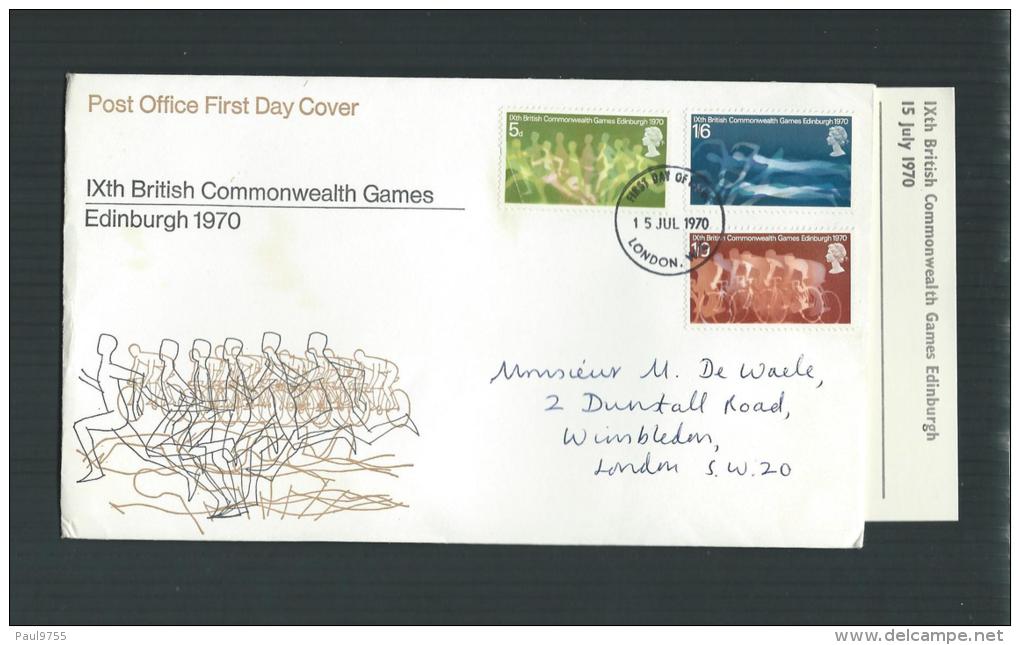 Post Office First Day Cover
IXth British Commonwealth Games
Edinburgh 1970
IXth British Commonwealth Games Edinburgh 1970
5d
IXth British Commonwealth Games Edinburgh 1970
1/6
IXth British Commonwealth Games Edinburgh 1970
1/9
FIRST DAY OF
15 JUL 1970
LONDON.
Monsieur M. De Waele,
2 Dunstall Road,
Wimbledon,
London S.W.20
IXth British Commonwealth Games Edinburgh
15 July 1970
Paul9755
www.delcampe.net